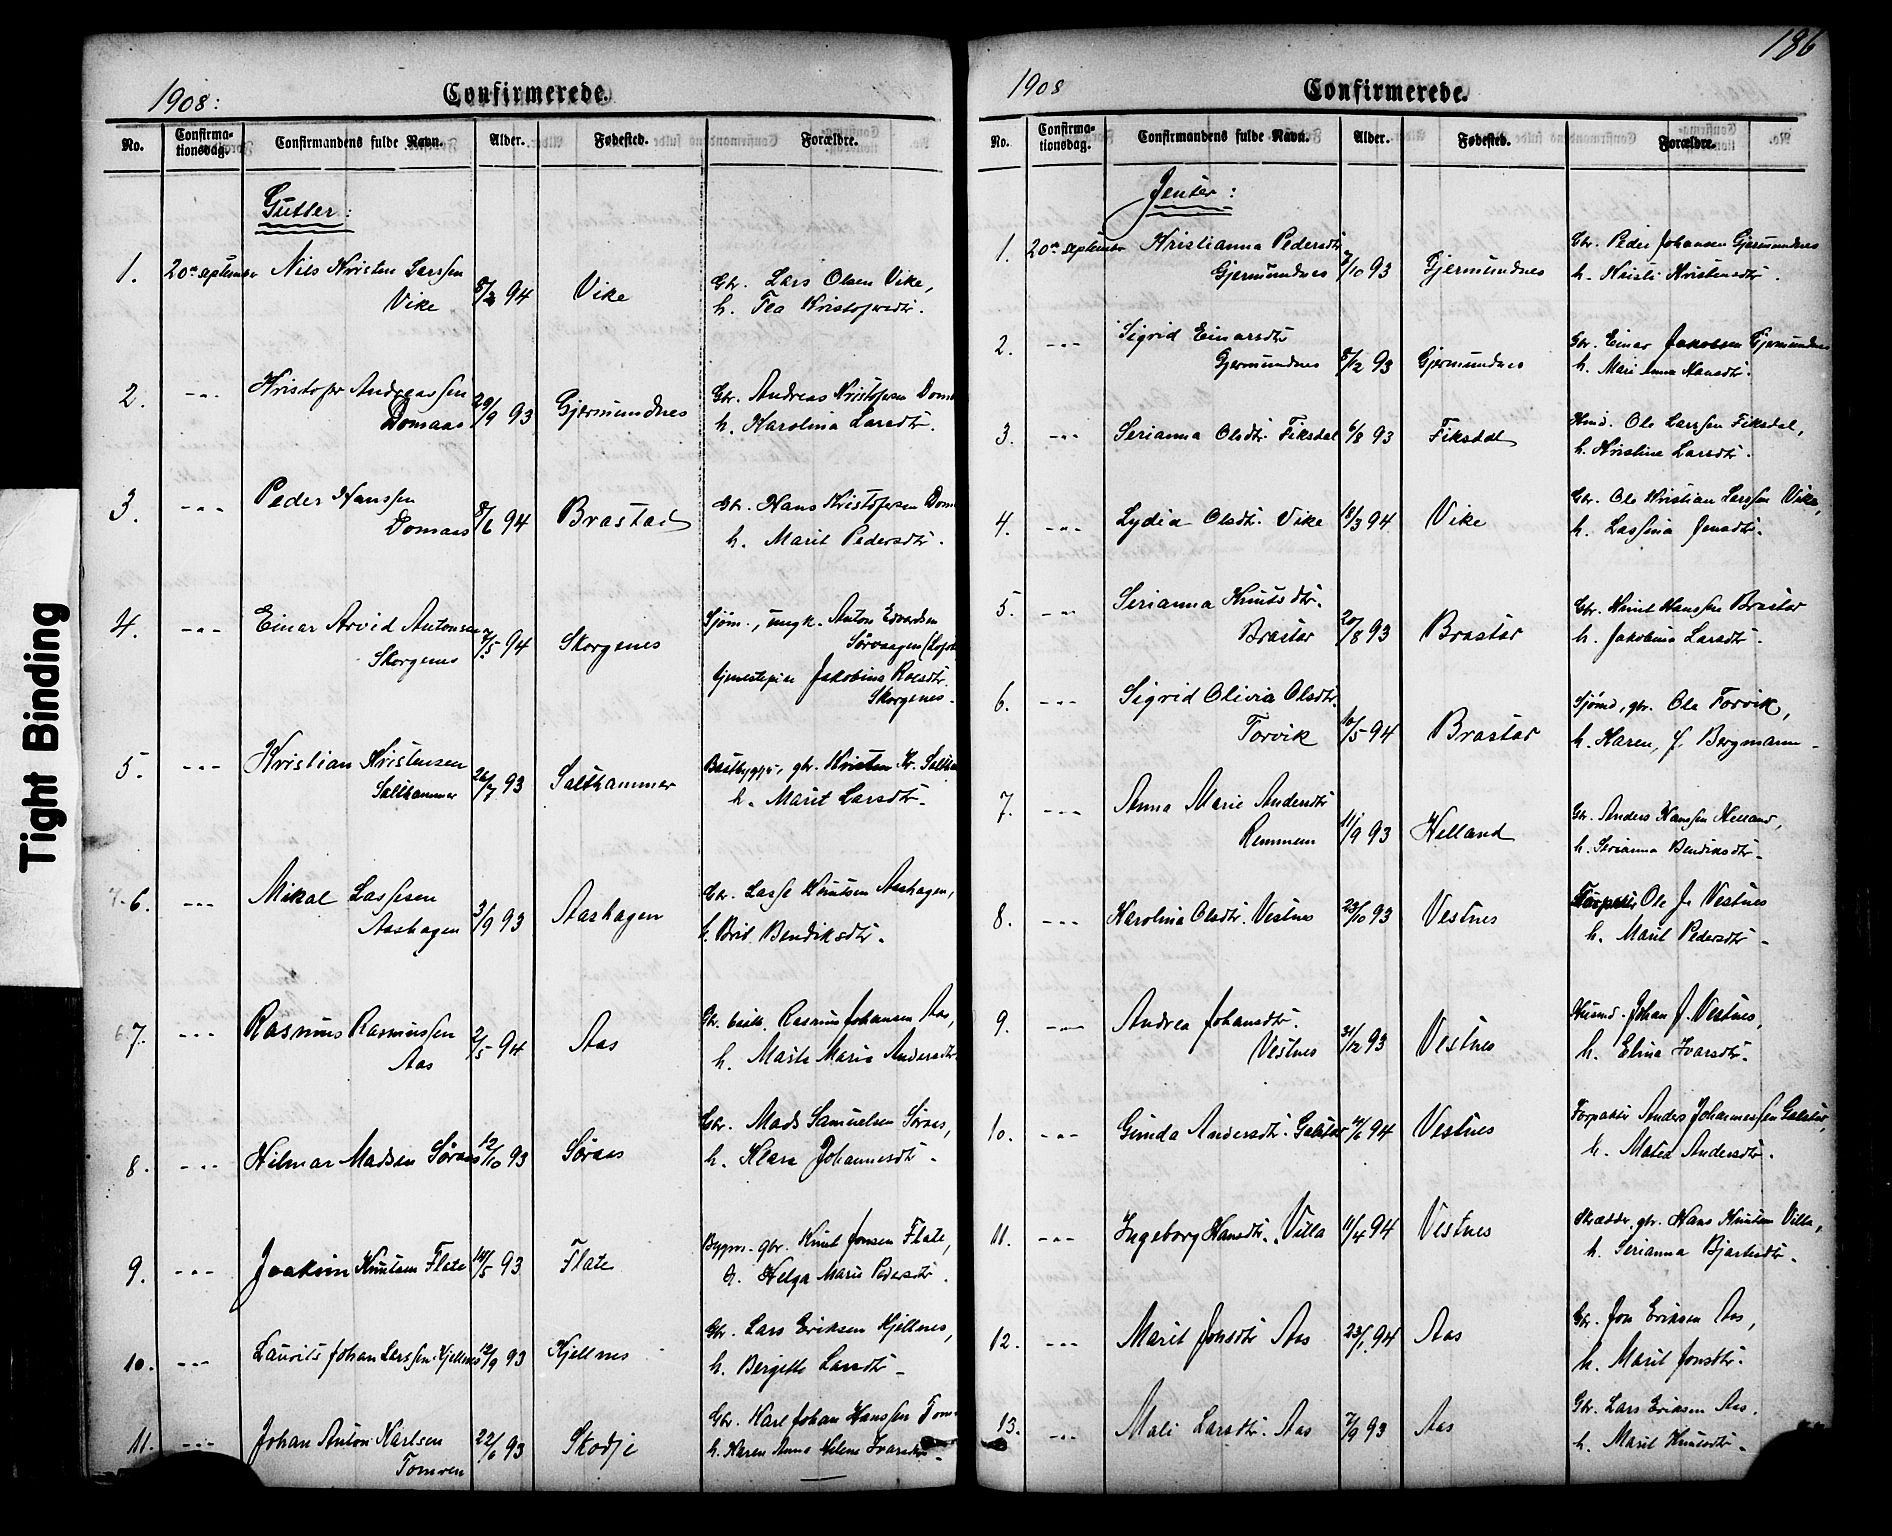 Tight Binding
1908:
Confirmerede.
No.
Confirma-
tionsdag.
Confirmandens fulde Navn.
Alder.
Fødested.
Forældre.
Gutter:
1. 20de september Nils Kristen Larssen
Vike 8/2 94 Vike
Gbr. Lars Olsen Vike,
h. Tea Kristofersdtr.
2. -"- Kristofer Andreassen
Domaas 29/9 93 Gjermundnes
Gbr. Andreas Kristofersen Dom
h. Karolina Larsdtr.
3. -"- Peder Hanssen
Domaas 8/6 94 Brastad
Gbr. Hans Kristofersen Dom
h. Marit Pedersdtr.
4. -"- Einar Arvid Antonsen
Skorgenes 7/5 94 Skorgenes
Sjøm., ungk. Anton Edvardsen
Sørvaagen (Lofot
tjenestepige Jakobine Roesdtr.
Skorgenes.
5. -"- Kristian Kristensen
Salthammer 26/7 93 Salthammer
Baatbygger, gbr. Kristen Kr. Saltha
h. Marit Larsdtr.
6. -"- Mikal Lassesen
Aashagen 3/9 93 Aashagen
Gbr. Lasse Knutsen Aashagen,
h. Brit Bendiksdtr.
7. -"- Rasmus Rasmussen
Aas 2/5 94 Aas
Gbr. Rasmus Johansen Aas,
h. Marte Marie Andersdtr.
8. -"- Hilmar Madsen Søraas 12/10 93 Søraas
Gbr. Mads Samuelsen Søraas,
h. Klara Johannesdtr.
9. -"- Joakim Knutsen Flate 14/5 93 Flate
Bygm. gbr. Knut Jonsen Flate,
h. Helga Marie Pedersdtr.
10. -"- Laurits Johan Larssen Kjellnes 12/9 93 Kjellnes
Gbr. Lars Eriksen Kjellnes,
h. Bergitte Larsdtr.
11. -"- Johan Anton Karlsen
Tomren 22/6 93 Skodje
Gbr. Karl Johan Hanssen Tom
h. Karen Anna Helene Ivarsdtr.
186
1908
Confirmerede.
No.
Confirma-
tionsdag.
Confirmandens fulde Navn.
Alder.
Fødested.
Forældre.
Jenter:
1. 20de september Kristianna Pedersdtr
Gjermundnes 7/10 93 Gjermundnes
Gbr. Peder Johansen Gjermundnes
h. Kristensdtr.
2. -"- Sigrid Einarsdtr
Gjermundnes 8/12 93 Gjermundnes
Gbr. Einar Jakobsen Gjermundnes
h. Mari Anna Hansdtr.
3. -"- Serianna Olsdtr. Fiksdal 6/8 93 Fiksdal
Husmd. Ole Larssen Fiksdal,
h. Kristine Larsdtr.
4. -"- Lydia Olsdtr. Vike 18/3 94 Vike
Gbr. Ole Kristian Larssen Vike,
h. Lassina Jensdtr.
5. -"- Serianna Knutsdtr.
Brastad 20/8 93 Brastad
Gbr. Knut Hanssen Brastad
h. Jakobine Larsdtr.
6. -"- Sigrid Olivia Olsdtr.
Torvik 10/5 94 Brastad
Sjømd, gbr. Ole Torvik,
h. Karen, f. Bergmann
7. -"- Anna Marie Andersdtr
Remmem 11/9 93 Helland
Gbr. Anders Hanssen Helland,
h. Serianna Bendiksdtr.
8. -"- Karolina Olsdtr. Vestnes 23/10 93 Vestnes
Forpakter Ole J. Vestnes
h. Marit Pedersdtr
9. -"- Andrea Johansdtr.
Vestnes 31/12 93 Vestnes
Husmd. Johan J. Vestnes,
h. Elina Ivarsdtr.
10. -"- Gunda Andersdtr. Galstad 11/6 94 Vestnes
Forpakter Anders Johannessen
h. Andersdtr.
11. -"- Ingeborg Hansdtr. Villa 11/4 94 Vestnes
Skrædder, gbr. Hans Knutsen Villa,
h. Serianna Bjartesdtr.
12. -"- Marit Jonsdtr Aas 23/1 94 Aas
Gbr. Jon Eriksen Aas,
h. Marit Jonsdtr.
13. -"- Mali Larsdtr. Aas 7/9 93 Aas
Gbr. Lars Eriksen Aas.
h. Marit Knutsdtr.